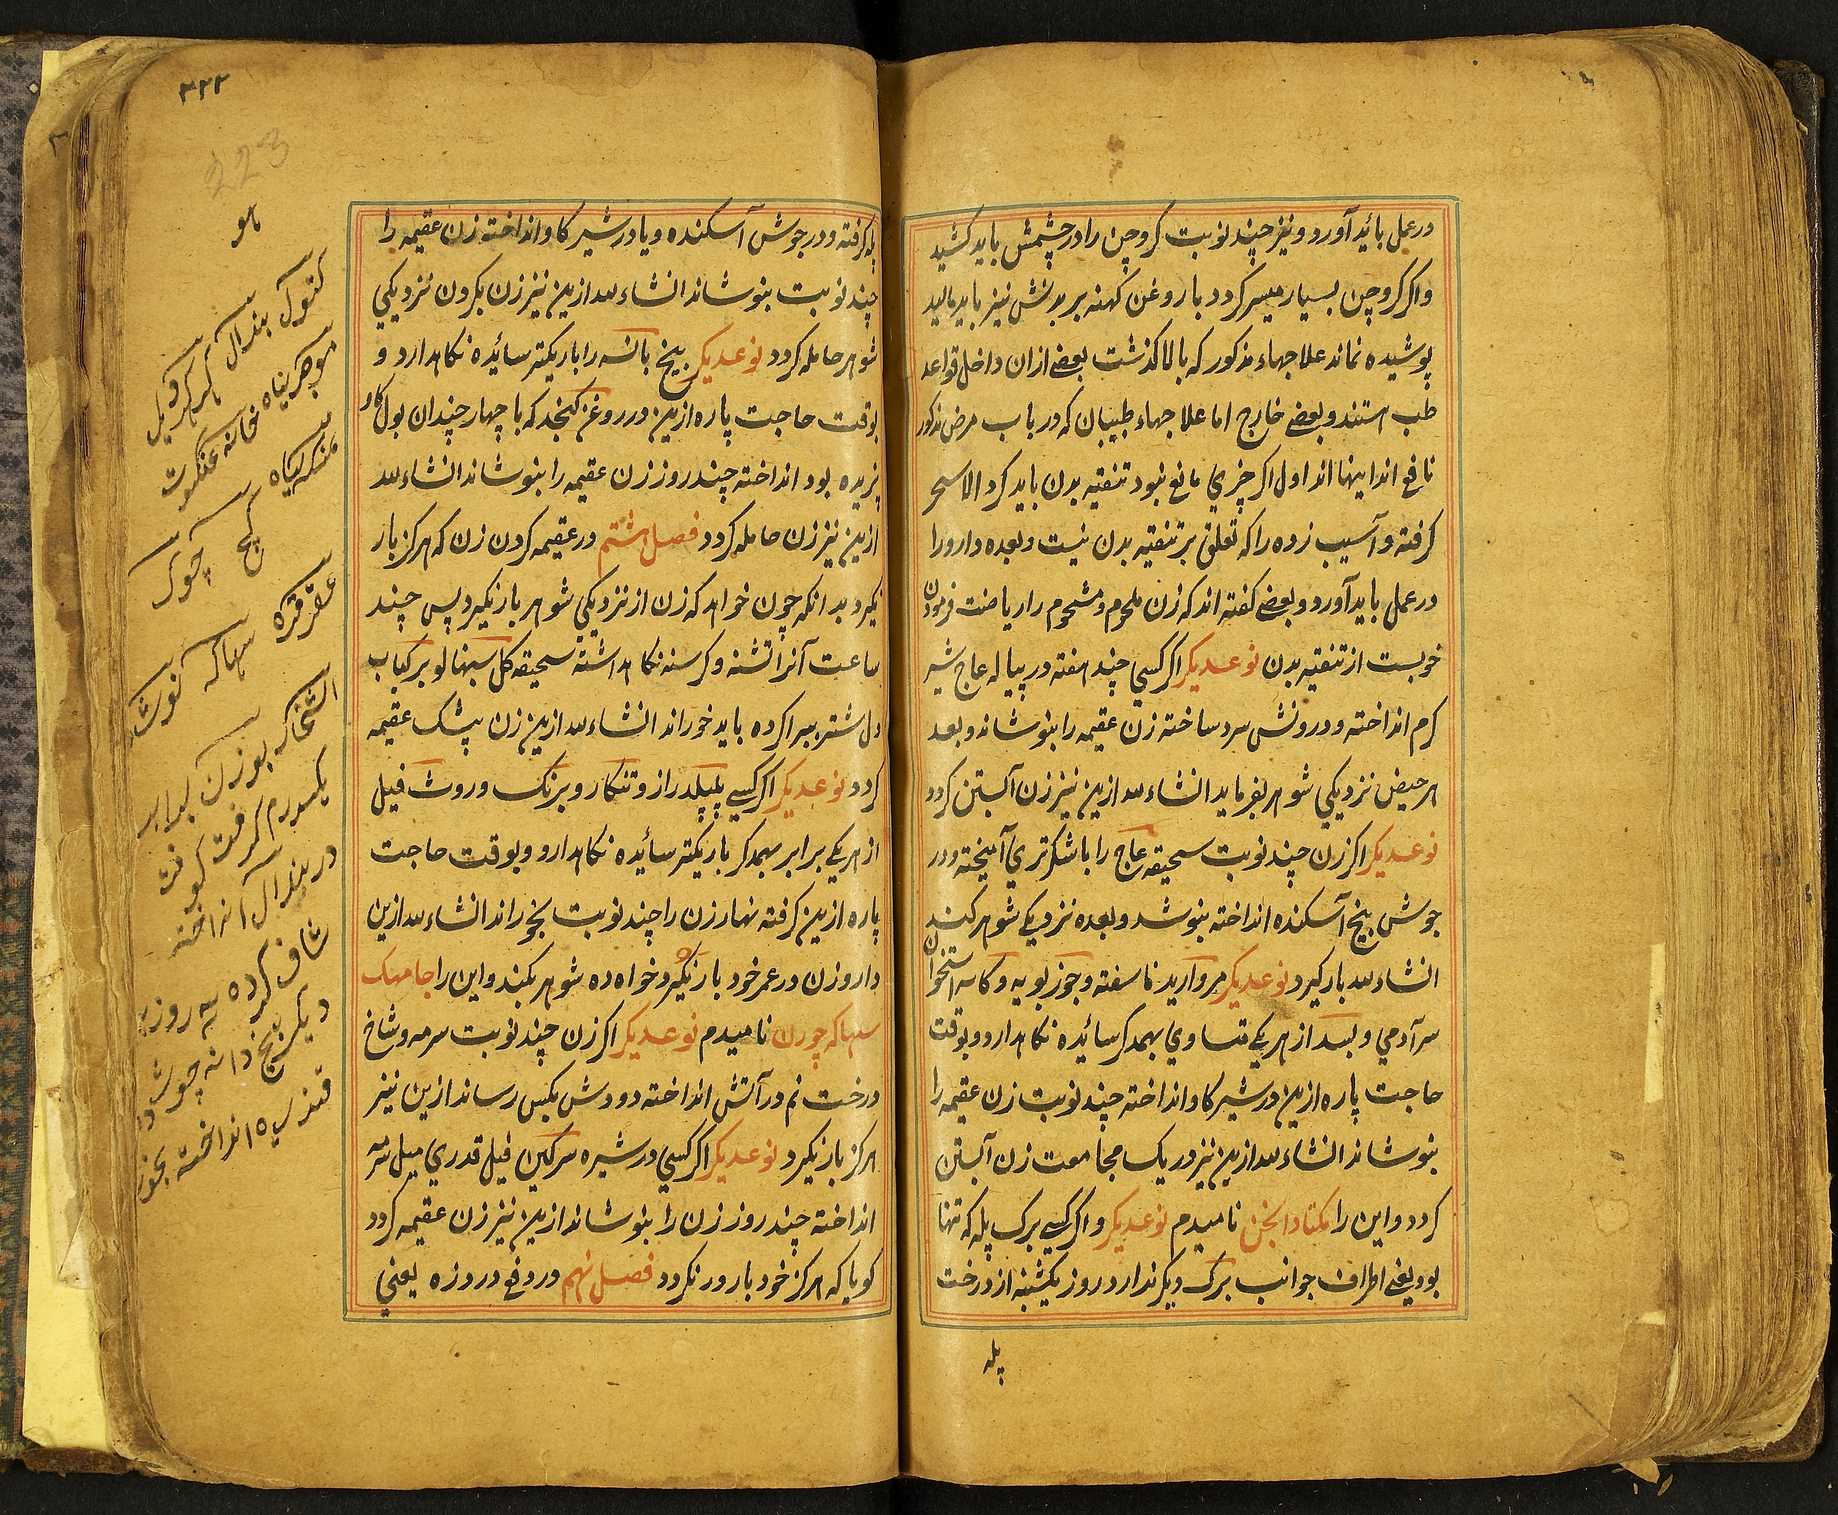 در عمل بائد آورد و نیز چند نوبت کروچن را در چشمش باید کشید
و اکر کروچن بسیار میسر کردد با روغن کهنه بر بدنش نیز باید مالید
پوشیده نماند علاجهاء مذکور که بالا کذشت بعضے ازان داخل قواعد
طب هستند و بعضے خارج اما علاجهاء طبیبان که در باب مرض مذکور
نافع اند اینها اند اول اکر چیزي مانع نبود تنقیه بدن باید کرد الا سحر
کرفته و آسیب زده را که تعلق بر تنقیه بدن نیست و بعده دارو را
در عمل باید آورد و بعضے کفته اند که زن ملحوم و مشحوم را ریاضت فرمودن
خوبست از تنقیه بدن نوعدیکر اکر کسي چند هفته در پیاله عاج شیر
کرم انداخته و درونش سرد ساخته زن عقیمه را بنوشاند و بعد
هر حیض نزدیکي شوهر بفرماید انشاءلله ازین نیز زن آبستن کردد
نوعدیکر اکر زن چند نوبت سحیقه عاج را با شکر تري آمیخته و در
جوش بیخ آسکنده انداخته بنوشد و بعده نزدیکے شوهر کند
انشاءلله بار کیرد نوعدیکر مروارید ناسفته و جوز بویه و کاسه استخوان
سر آدمي و بسد از هر یکے متساوي بهمدکر سائیده نکاهدارد و بوقت
حاجت پاره ازین در شیر کاو انداخته چند نوبت زن عقیمه را
بنوشاند انشاءلله ازین نیز در یک مجامعت زن آبستن
کردد و این را نامیدم نوعدیکر و اکر کسے برک پله که تنها
بود یعنے اطراف جوانب برک دیکر ندارد روز یکشنبه از درخت
پله
۳۲۲
223
پله کرفته و در جوش آسکنده و یا در شیر کاو انداخته زن عقیمه را
چند نوبت بنوشاند انشاءلله ازین نیز زن بکردن نزدیکي
شوهر حامله کردد نوعدیکر بیخ بانسه را باریکتر سائیده نکاهدارد و
بوقت حاجت پاره ازین در روغن کنجد که با چهار چندان بول کاو
پزیده بود انداخته چند روز زن عقیمه را بنوشاند انشاءلله
ازین نیز زن حامله کردد فصل هشتم در عقیمه کردن زن که هرکز بار
نکیرد بدانکه چون خواهد که زن از نزدیکي شوهر بار نکیرد پس چند
ساعت آنرا تشنه و کرسنه نکاهداشته سحیقه کل سبنهالو بر کباب
دل شتر ببرا کرده باید خوراند انشاءلله ازین زن بیشک عقیمه
کردد نوعدیکر اکر کسے پیپلدراز و تنکار و برنک و روث فیل
از هر یکے برابر بهمدکر باریکتر سائیده نکاهدارد و بوقت حاجت
پاره ازین کرفته نهار زن را چند نوبت بخوراند انشاءلله ازین
دارو زن در عمر خود بار نکیرد خواه ده شوهر بکند و این را جامهک
سهاکه چورن نامیدم نوعدیکر اکر زن چند نوبت سرمه و شاخ
درخت نم در آتش انداخته دودش بکس رساند ازین نیز
هرکز بار نکیرد نوعدیکر اکر کسي در شیره سرکین فیل قدري میل
انداخته چند روز زن را بنوشاند ازین نیز زن عقیمه کردد
کویا که هرکز خود بارور نکردد فصل نهم در دفع درد زه یعني
هو
کتول بندال کهرکرویل
موهر سیاه خانه عنکبوت
کچ چوک
عقرقره سهاکه نوشادر
بوزن برابر
یکدرم کرفت کوفت
در بندال انداخته
شاف کرده سه روز
دیکر بیخ دانه جوش
قند سیاه انداخته بخور